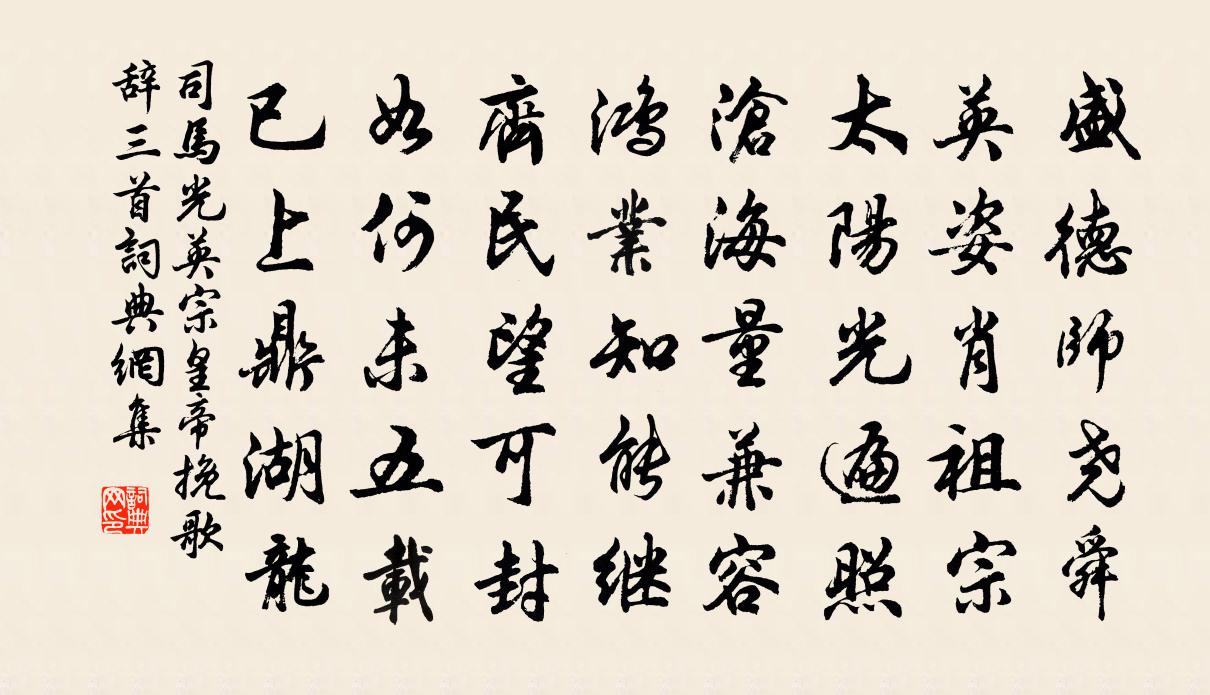 盛德師尧舜
英姿肖祖宗
太陽光遍照
滄海量兼容
鸿業知能継
齊民望可封
如何未五載
已上鼎湖龍
司馬光英宗皇帝挽歌
辞三首詞典網集
詞典
网印